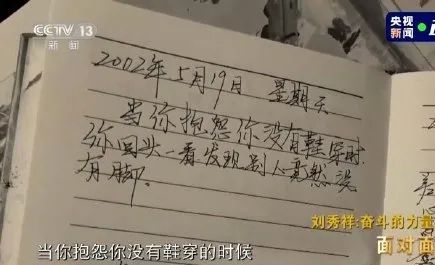 CCTV 13
新闻
央视
新闻
2002年5月19日 星期天
当你抱怨你没有鞋穿时
你回头一看发现别人竟然没
有脚.
刘秀祥:奋斗的力量
面对面
当你抱怨你没有鞋穿的时候